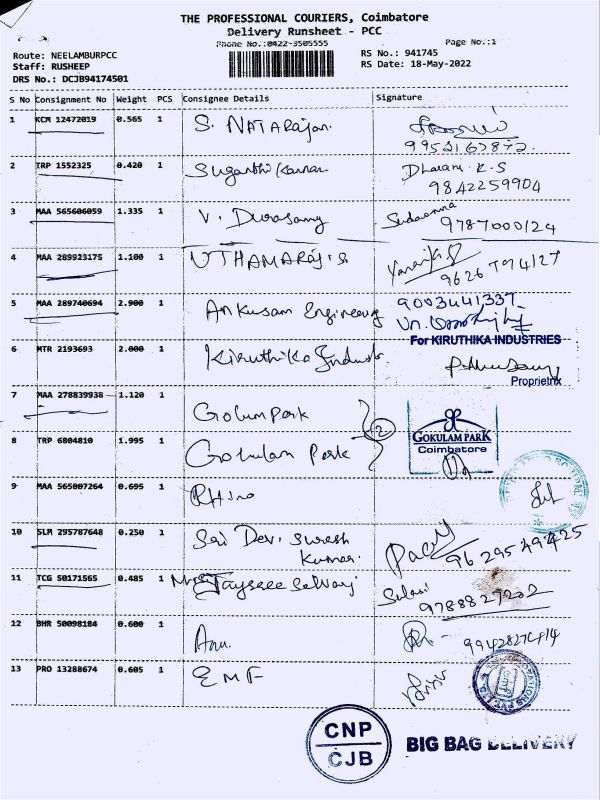 THE PROFESSIONAL COURIERS, Coimbatore
Delivery Runsheet - PCC
Phone No.:0422-3505555
Page No.:1
Route: NEELAMBURPCC
Staff: RUSHEEP
DRS No.: DCJB94174501
RS No.: 941745
RS Date: 18-May-2022
S No Consignment No Weight PCS Consignee Details Signature
1 KCM 12472019 0.565 1 S. NATARAjan.
2 TRP 1552325 0.420 1 Suganthi Kannan Dharani K.S
9842259904
3 MAA 565606059 1.335 1 V. Duraisamy 9787000124
4 MAA 289923175 1.100 1 UTHAMARAj. S
5 MAA 289740694 2.900 1 Ankusam Engineering 9003441337
6 MTR 2193693 2.000 1 Kiruthika Industr For KIRUTHIKA INDUSTRIES
Proprietrix
7 MAA 278839938 1.120 1 Golum Park
2
GOKULAM PARK
Coimbatore
8 TRP 6804810 1.995 1 Gokulam Park
9 MAA 565807264 0.695 1 RHino
10 SLM 295787648 0.250 1 Sri Devi Suresh
Kumar.
11 TCG 50171565 0.485 1 Jaysree Selvaraj
9788827202
12 BHR 50098184 0.600 1 Anu.
13 PRO 13288674 0.605 1 EMF
CNP
CJB
BIG BAG DELIVERY